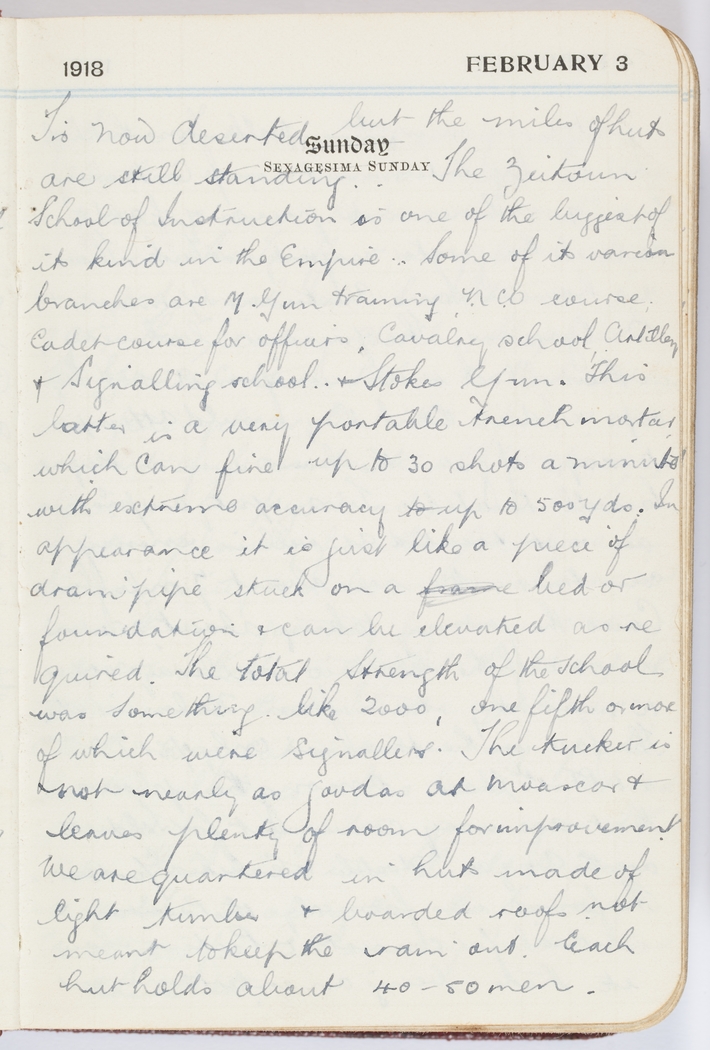 1918 FEBRUARY 3
Tis now deserted but the miles of huts
Sunday
SEXAGESIMA SUNDAY
are still standing.. The Zeitoun
School of Instruction is one of the biggest of
its kind in the Empire.. Some of its various
branches are M. Gun training, N.C.O course,
Cadet course for officers, Cavalry school, Artillery
& Signalling school.. & Stokes Gun. This
latter is a very portable trench mortar,
which can fire up to 30 shots a minute
with extreme accuracy to up to 500 yds. In
appearance it is just like a piece of
drainpipe stuck on a frame bed or
foundation & can be elevated as re
quired. The total strength of the school
was something like 2000, one fifth or more
of which were Signallers. The tucker is
not nearly as good as at Moascar &
leaves plenty of room for improvement
We are quartered in huts made of
light timber & boarded roofs not
meant to keep the rain out. Each
hut holds about 40-50 men.